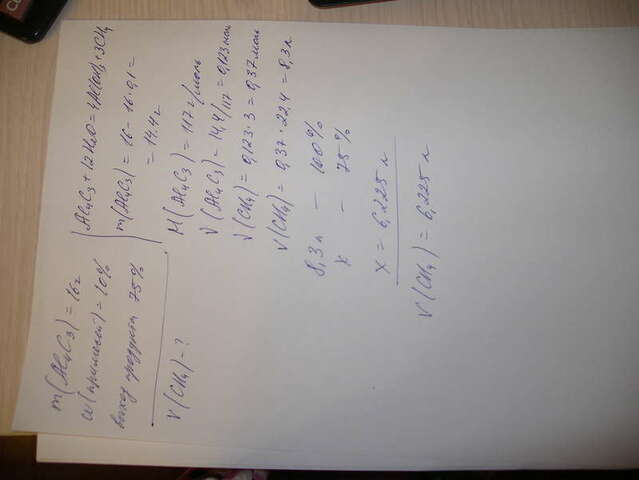 m(Al₄C₃) = 16г
ω(примесей) = 10%
выход продукта 75%
V(CH₄) - ?
Al₄C₃ + 12H₂O = 4Al(OH)₃ + 3CH₄
m(Al₄C₃) = 16 - 16·0,1 =
= 14.4г
M(Al₄C₃) = 117 г/моль
√(Al₄C₃) = 14,4/117 = 0,123 моль
√(CH₄) = 0,123·3 = 0,37 моль
V(CH₄) = 0,37·22,4 = 8,3 л
8,3 л — 100%
x — 75%
x = 6,225 л
V(CH₄) = 6,225 л